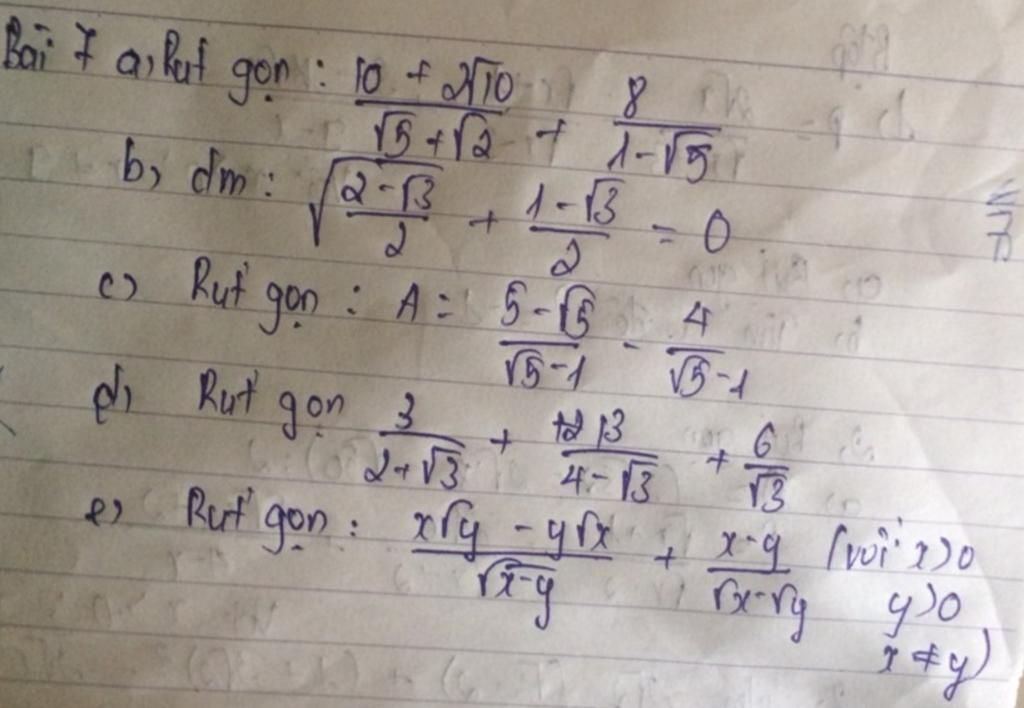 Bài 7 a, Rút gọn : (10 + 2√10)/(√5 + √2) + 8/(1 - √5)
b, dm : √((2 - √3)/2) + (1 - √3)/2 = 0
c) Rút gọn : A = (5 - √5)/(√5 - 1) - 4/(√5 - 1)
d) Rút gọn 3/(2 + √3) + 13/(4 - √3) + 6/√3
e) Rút gọn : (x√y - y√x)/√(x - y) + (x - y)/(√x - √y) (với x > 0
y > 0
x ≠ y)